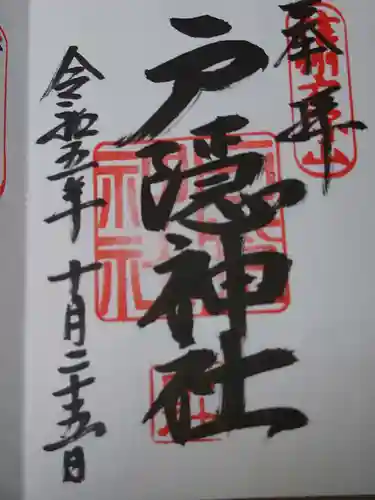 奉拝
戸隠神社
令和五年 十月二十五日